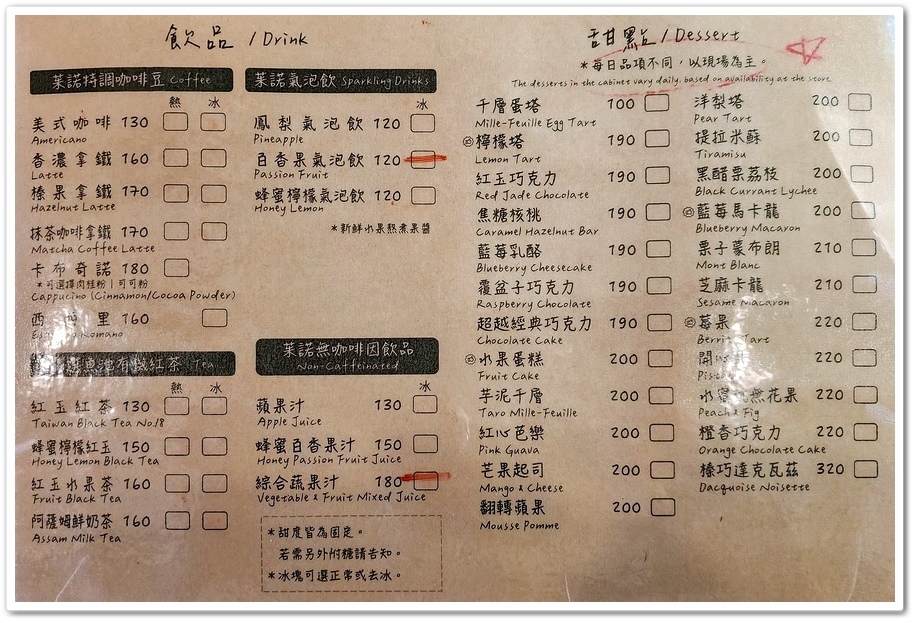 飲品 / Drink
萊諾特調咖啡豆 Coffee
熱 冰
美式咖啡 130
Americano
香濃拿鐵 160
Latte
榛果拿鐵 170
Hazelnut Latte
抹茶咖啡拿鐵 170
Matcha Coffee Latte
卡布奇諾 180
*可選擇肉桂粉|可可粉
Cappucino (Cinnamon/Cocoa Powder)
西 里 160
Romano
有機紅茶 Tea
熱 冰
紅玉紅茶 130
Taiwan Black Tea No.18
蜂蜜檸檬紅玉 150
Honey Lemon Black Tea
紅玉水果茶 160
Fruit Black Tea
阿薩姆鮮奶茶 160
Assam Milk Tea
萊諾氣泡飲 Sparkling Drinks
冰
鳳梨氣泡飲 120
Pineapple
百香果氣泡飲 120
Passion Fruit
蜂蜜檸檬氣泡飲 120
Honey Lemon
*新鮮水果熬煮果醬
萊諾無咖啡因飲品
Non-Caffeinated
冰
蘋果汁 130
Apple Juice
蜂蜜百香果汁 150
Honey Passion Fruit Juice
綜合蔬果汁 180
Vegetable & Fruit Mixed Juice
*甜度皆為固定。
若需另外附糖請告知。
*冰塊可選正常或去冰。
甜點 / Dessert
*每日品項不同,以現場為主。
The desserts in the cabinet vary daily, based on availability at the store
千層蛋塔 100
Mille-Feuille Egg Tart
檸檬塔 190
Lemon Tart
紅玉巧克力 190
Red Jade Chocolate
焦糖核桃 190
Caramel Hazelnut Bar
藍莓乳酪 190
Blueberry Cheesecake
覆盆子巧克力 190
Raspberry Chocolate
超越經典巧克力 190
Chocolate Cake
水果蛋糕 200
Fruit Cake
芋泥千層 200
Taro Mille-Feuille
紅心芭樂 200
Pink Guava
芒果起司 200
Mango & Cheese
翻轉蘋果 200
Mousse Pomme
洋梨塔 200
Pear Tart
提拉米蘇 200
Tiramisu
黑醋栗荔枝 200
Black Currant Lychee
藍莓馬卡龍 200
Blueberry Macaron
栗子蒙布朗 210
Mont Blanc
芝麻卡龍 210
Sesame Macaron
莓果 220
Tart
開心 220
水蜜 無花果 220
Peach & Fig
橙香巧克力 220
Orange Chocolate Cake
榛巧達克瓦茲 320
Dacquoise Noisette